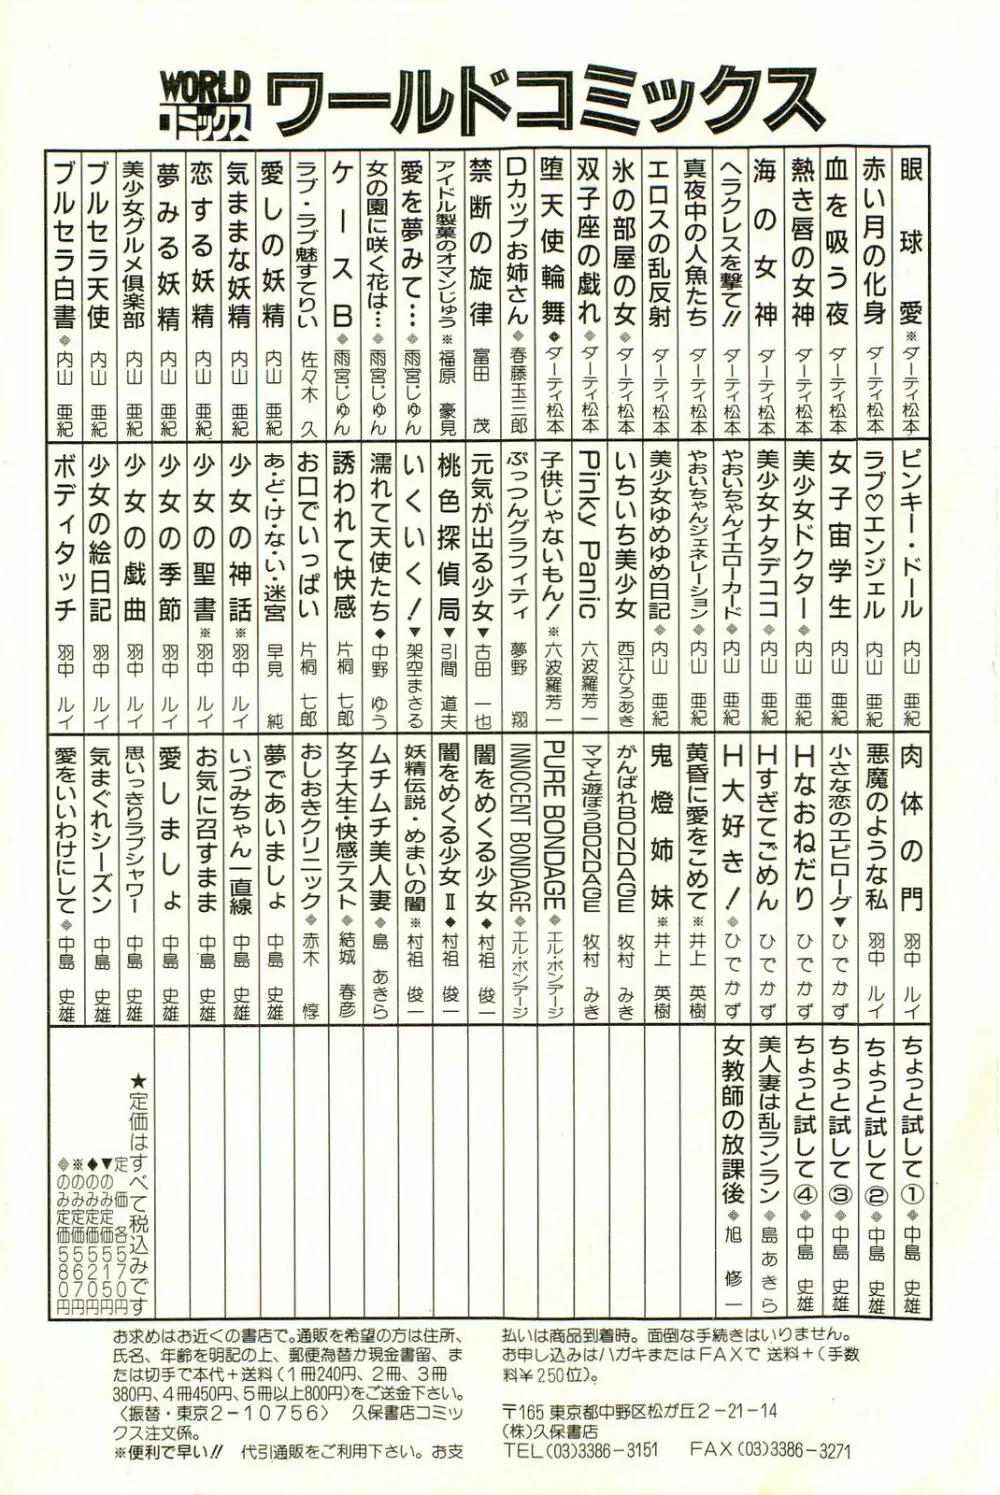 WORLD
コミックス
ワールドコミックス
眼球愛※ダーティ松本
赤い月の化身 ダーティ松本
血を吸う夜 ダーティ松本
熱き唇の女神 ダーティ松本
海の女神 ダーティ松本
ヘラクレスを撃て!! ダーティ松本
真夜中の人魚たち ダーティ松本
エロスの乱反射 ダーティ松本
氷の部屋の女◈ダーティ松本
双子座の戯れ◈ダーティ松本
堕天使輪舞◆ダーティ松本
Dカップお姉さん◈春藤玉三郎
禁断の旋律 富田 茂
アイドル製菓のオマンじゅう※福原 豪見
愛を夢みて…◈雨宮じゅん
女の園に咲く花は…◈雨宮じゅん
ケースB◈雨宮じゅん
ラブ・ラブ魅すてりい 佐々木 久
愛しの妖精 内山 亜紀
気ままな妖精 内山 亜紀
恋する妖精 内山 亜紀
夢みる妖精 内山 亜紀
美少女グルメ倶楽部 内山 亜紀
ブルセラ天使 内山 亜紀
ブルセラ白書◈内山 亜紀
ピンキー・ドール 内山 亜紀
ラブ♡エンジェル 内山 亜紀
女子宙学生 内山 亜紀
美少女ドクター◈内山 亜紀
美少女ナタデココ◈内山 亜紀
やおいちゃんイエローカード◈内山 亜紀
やおいちゃんジェネレーション◈内山 亜紀
美少女ゆめゆめ日記◈内山 亜紀
いちいち美少女 西江ひろあき
Pinky Panic 六波羅芳一
子供じゃないもん!※六波羅芳一
ぷっつんグラフィティ 夢野 翔
元気が出る少女▼古田 一也
桃色探偵局▼引間 道夫
いくいく!▼架空まさる
濡れて天使たち◆中野 ゆう
誘われて快感 片桐 七郎
お口でいっぱい 片桐 七郎
あ・ど・け・な・い・迷宮 早見 純
少女の神話※羽中 ルイ
少女の聖書※羽中 ルイ
少女の季節 羽中 ルイ
少女の戯曲 羽中 ルイ
少女の絵日記 羽中 ルイ
ボディタッチ 羽中 ルイ
肉体の門 羽中 ルイ
悪魔のような私 羽中 ルイ
小さな恋のエピローグ▼ひでかず
Hなおねだり ひでかず
Hすぎてごめん ひでかず
H大好き!◈ひでかず
黄昏に愛をこめて※井上 英樹
鬼燈姉妹※井上 英樹
がんばれBONDAGE 牧村 みき
ママと遊ぼうBONDAGE 牧村 みき
PURE BONDAGE◈エル・ボンデージ
INNOCENT BONDAGE◈エル・ボンデージ
闇をめくる少女◆村祖 俊一
闇をめくる少女Ⅱ◆村祖 俊一
妖精伝説・めまいの闇※村祖 俊一
ムチムチ美人妻◈島 あきら
女子大生・快感テスト◈結城 春彦
おしおきクリニック◈赤木 惇
夢であいましょ 中島 史雄
いづみちゃん一直線 中島 史雄
お気に召すまま 中島 史雄
愛しましょ 中島 史雄
思いっきりラブシャワー 中島 史雄
気まぐれシーズン 中島 史雄
愛をいいわけにして◈中島 史雄
ちょっと試して①◈中島 史雄
ちょっと試して②◈中島 史雄
ちょっと試して③◈中島 史雄
ちょっと試して④◈中島 史雄
美人妻は乱ランラン◈島 あきら
女教師の放課後◈旭 修一
★定価はすべて税込みです
定価各570円
▼のみ定価515円
◆のみ定価520円
※のみ定価560円
◈のみ定価580円
お求めはお近くの書店で。通販を希望の方は住所、
氏名、年齢を明記の上、郵便為替か現金書留、ま
たは切手で本代+送料(1冊240円、2冊、3冊
380円、4冊450円、5冊以上800円)をご送金下さい。
〈振替・東京2-10756〉 久保書店コミッ
クス注文係。
※便利で早い!! 代引通販をご利用下さい。お支
払いは商品到着時。面倒な手続きはいりません。
お申し込みはハガキまたはFAXで 送料+(手数
料￥250位)。
〒165 東京都中野区松が丘2-21-14
(株)久保書店
TEL(03)3386-3151 FAX(03)3386-3271